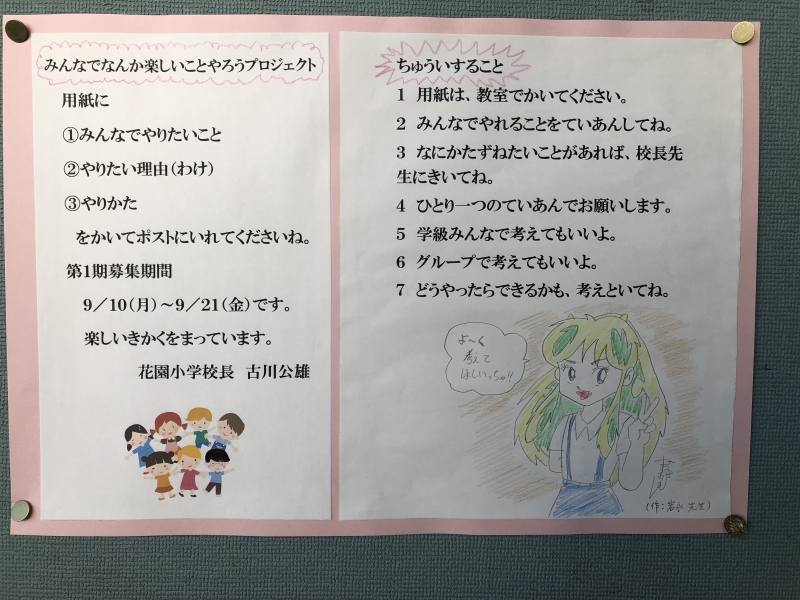 みんなでなんか楽しいことやろうプロジェクト
用紙に
①みんなでやりたいこと
②やりたい理由(わけ)
③やりかた
をかいてポストにいれてくださいね。
第1期募集期間
9/10(月)~9/21(金)です。
楽しいきかくをまっています。
花園小学校長 古川公雄
ちゅういすること
1 用紙は、教室でかいてください。
2 みんなでやれることをていあんしてね。
3 なにかたずねたいことがあれば、校長先
生にきいてね。
4 ひとり一つのていあんでお願いします。
5 学級みんなで考えてもいいよ。
6 グループで考えてもいいよ。
7 どうやったらできるかも、考えといてね。
よ~く
考えて
ほしいっちゃ!!
(作:岩永先生)